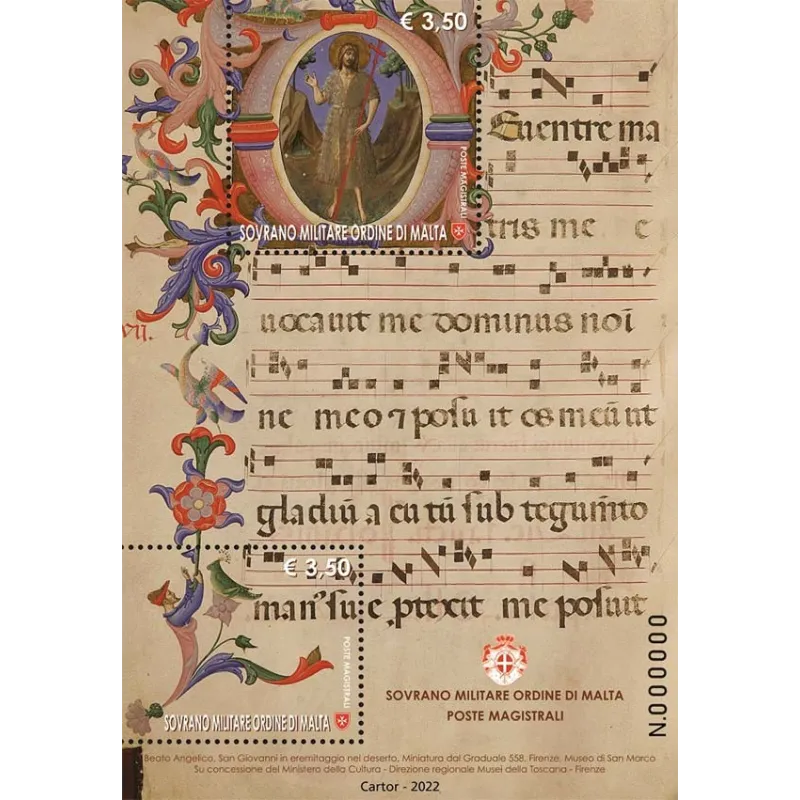 € 3,50
Euentre ma
POSTE MAGISTRALI
SOVRANO MILITARE ORDINE DI MALTA
tris me e
uocauit me dominus noı
vii.
ne meo ⁊ posu it os meū ut
gladiū a cu tū sub tegum̄to
€ 3,50
man' su e ptexit me posuit
POSTE MAGISTRALI
SOVRANO MILITARE ORDINE DI MALTA
SOVRANO MILITARE ORDINE DI MALTA
POSTE MAGISTRALI
N.000000
Beato Angelico, San Giovanni in eremitaggio nel deserto, Miniatura dal Graduale 558, Firenze, Museo di San Marco
Su concessione del Ministero della Cultura - Direzione regionale Musei della Toscana - Firenze
Cartor - 2022